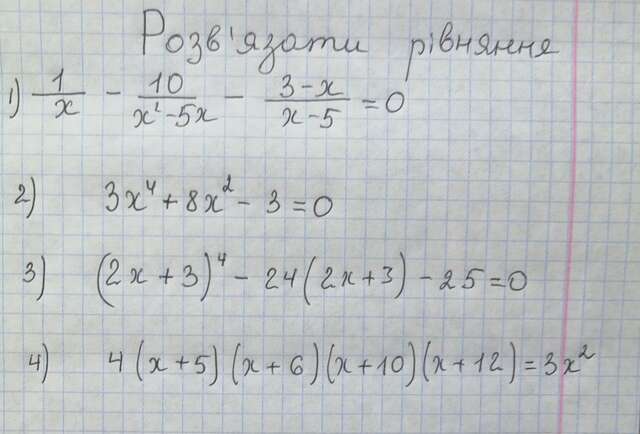 Розв'язати рівняння
1) 1/x - 10/(x² - 5x) - (3 - x)/(x - 5) = 0
2) 3x⁴ + 8x² - 3 = 0
3) (2x + 3)⁴ - 24(2x + 3) - 25 = 0
4) 4(x + 5)(x + 6)(x + 10)(x + 12) = 3x²